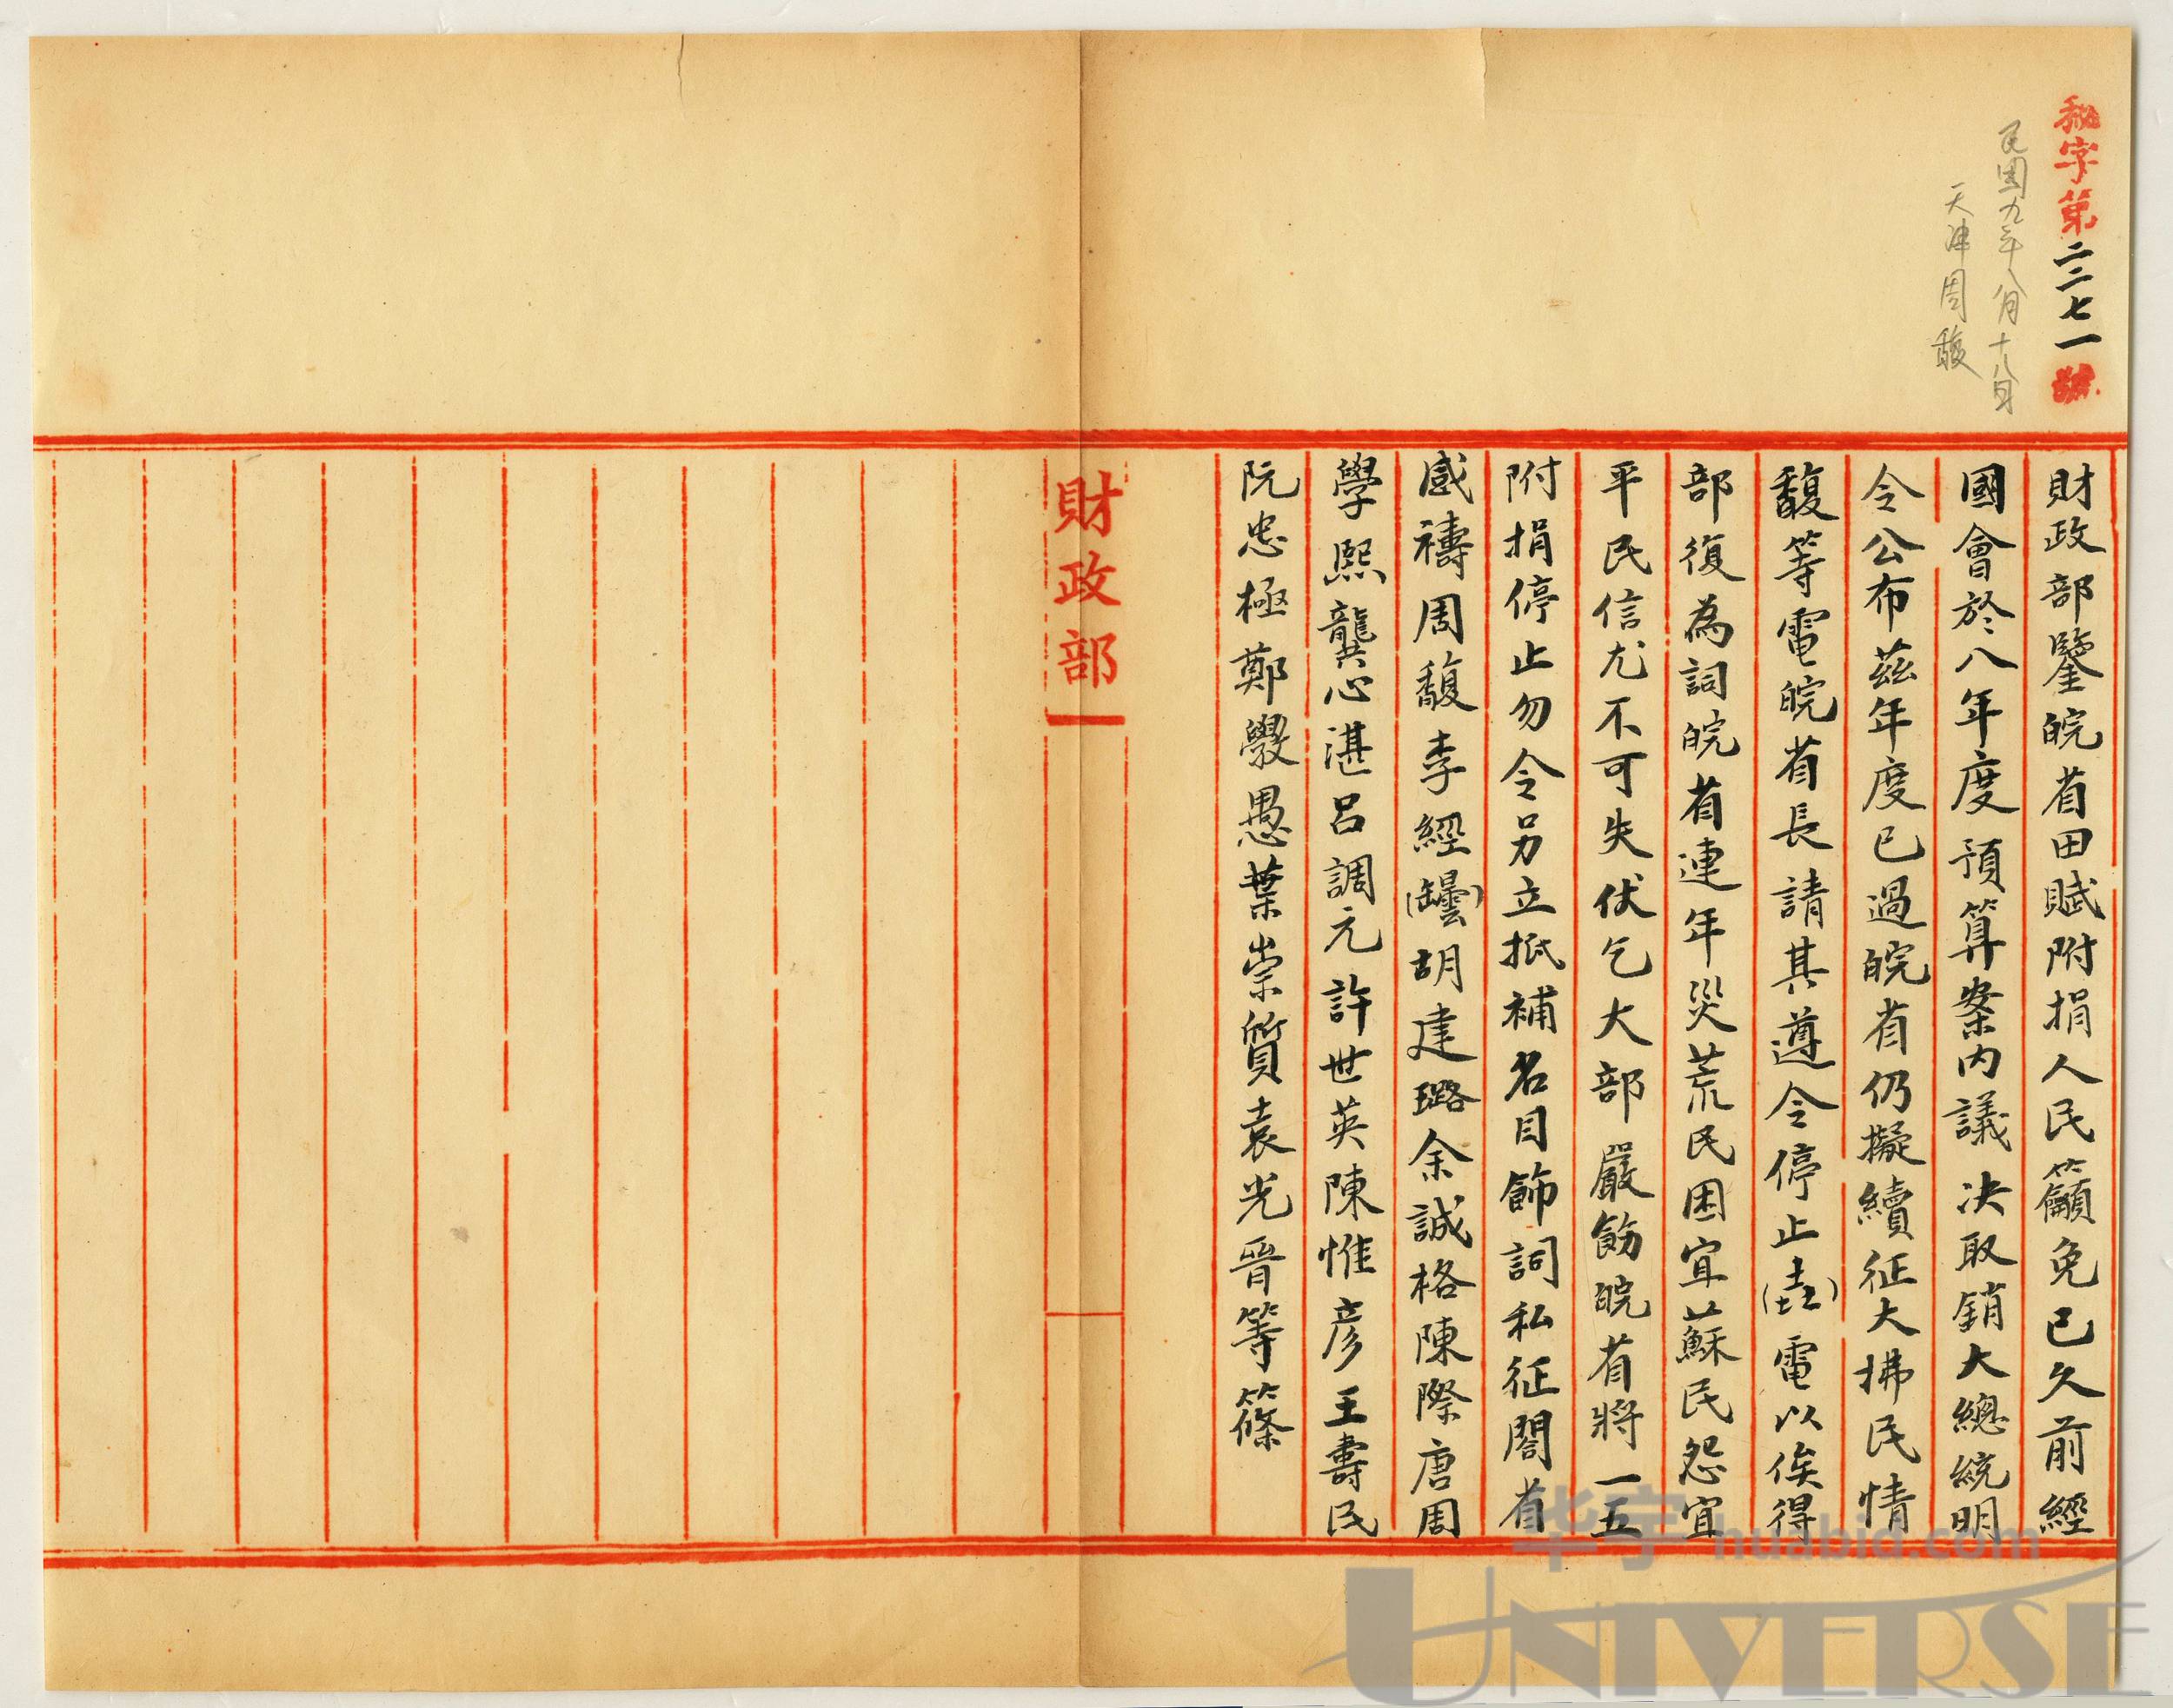 秘字第二二七一號
民國九年八月十八日
天津周馥
財政部鑒皖省田賦附捐人民籲免已久前經
國會於八年度預算案内議决取銷大總統明
令公布茲年度已過皖省仍擬續征大拂民情
馥等電皖省長請其遵令停止(壵)電以俟得
部復為詞皖省連年災荒民困宜蘇民怨宜
平民信尤不可失伏乞大部嚴飭皖省將一五
附捐停止勿令另立抵補名目飾詞私征闔省
感禱周馥李經(罎)胡建璐余誠格陳際唐周
學熙龔心湛呂調元許世英陳惟彦王壽民
阮忠極鄭斆愚葉崇質袁光晉等篠
財政部
华宇huabid.com
UNIVERSE